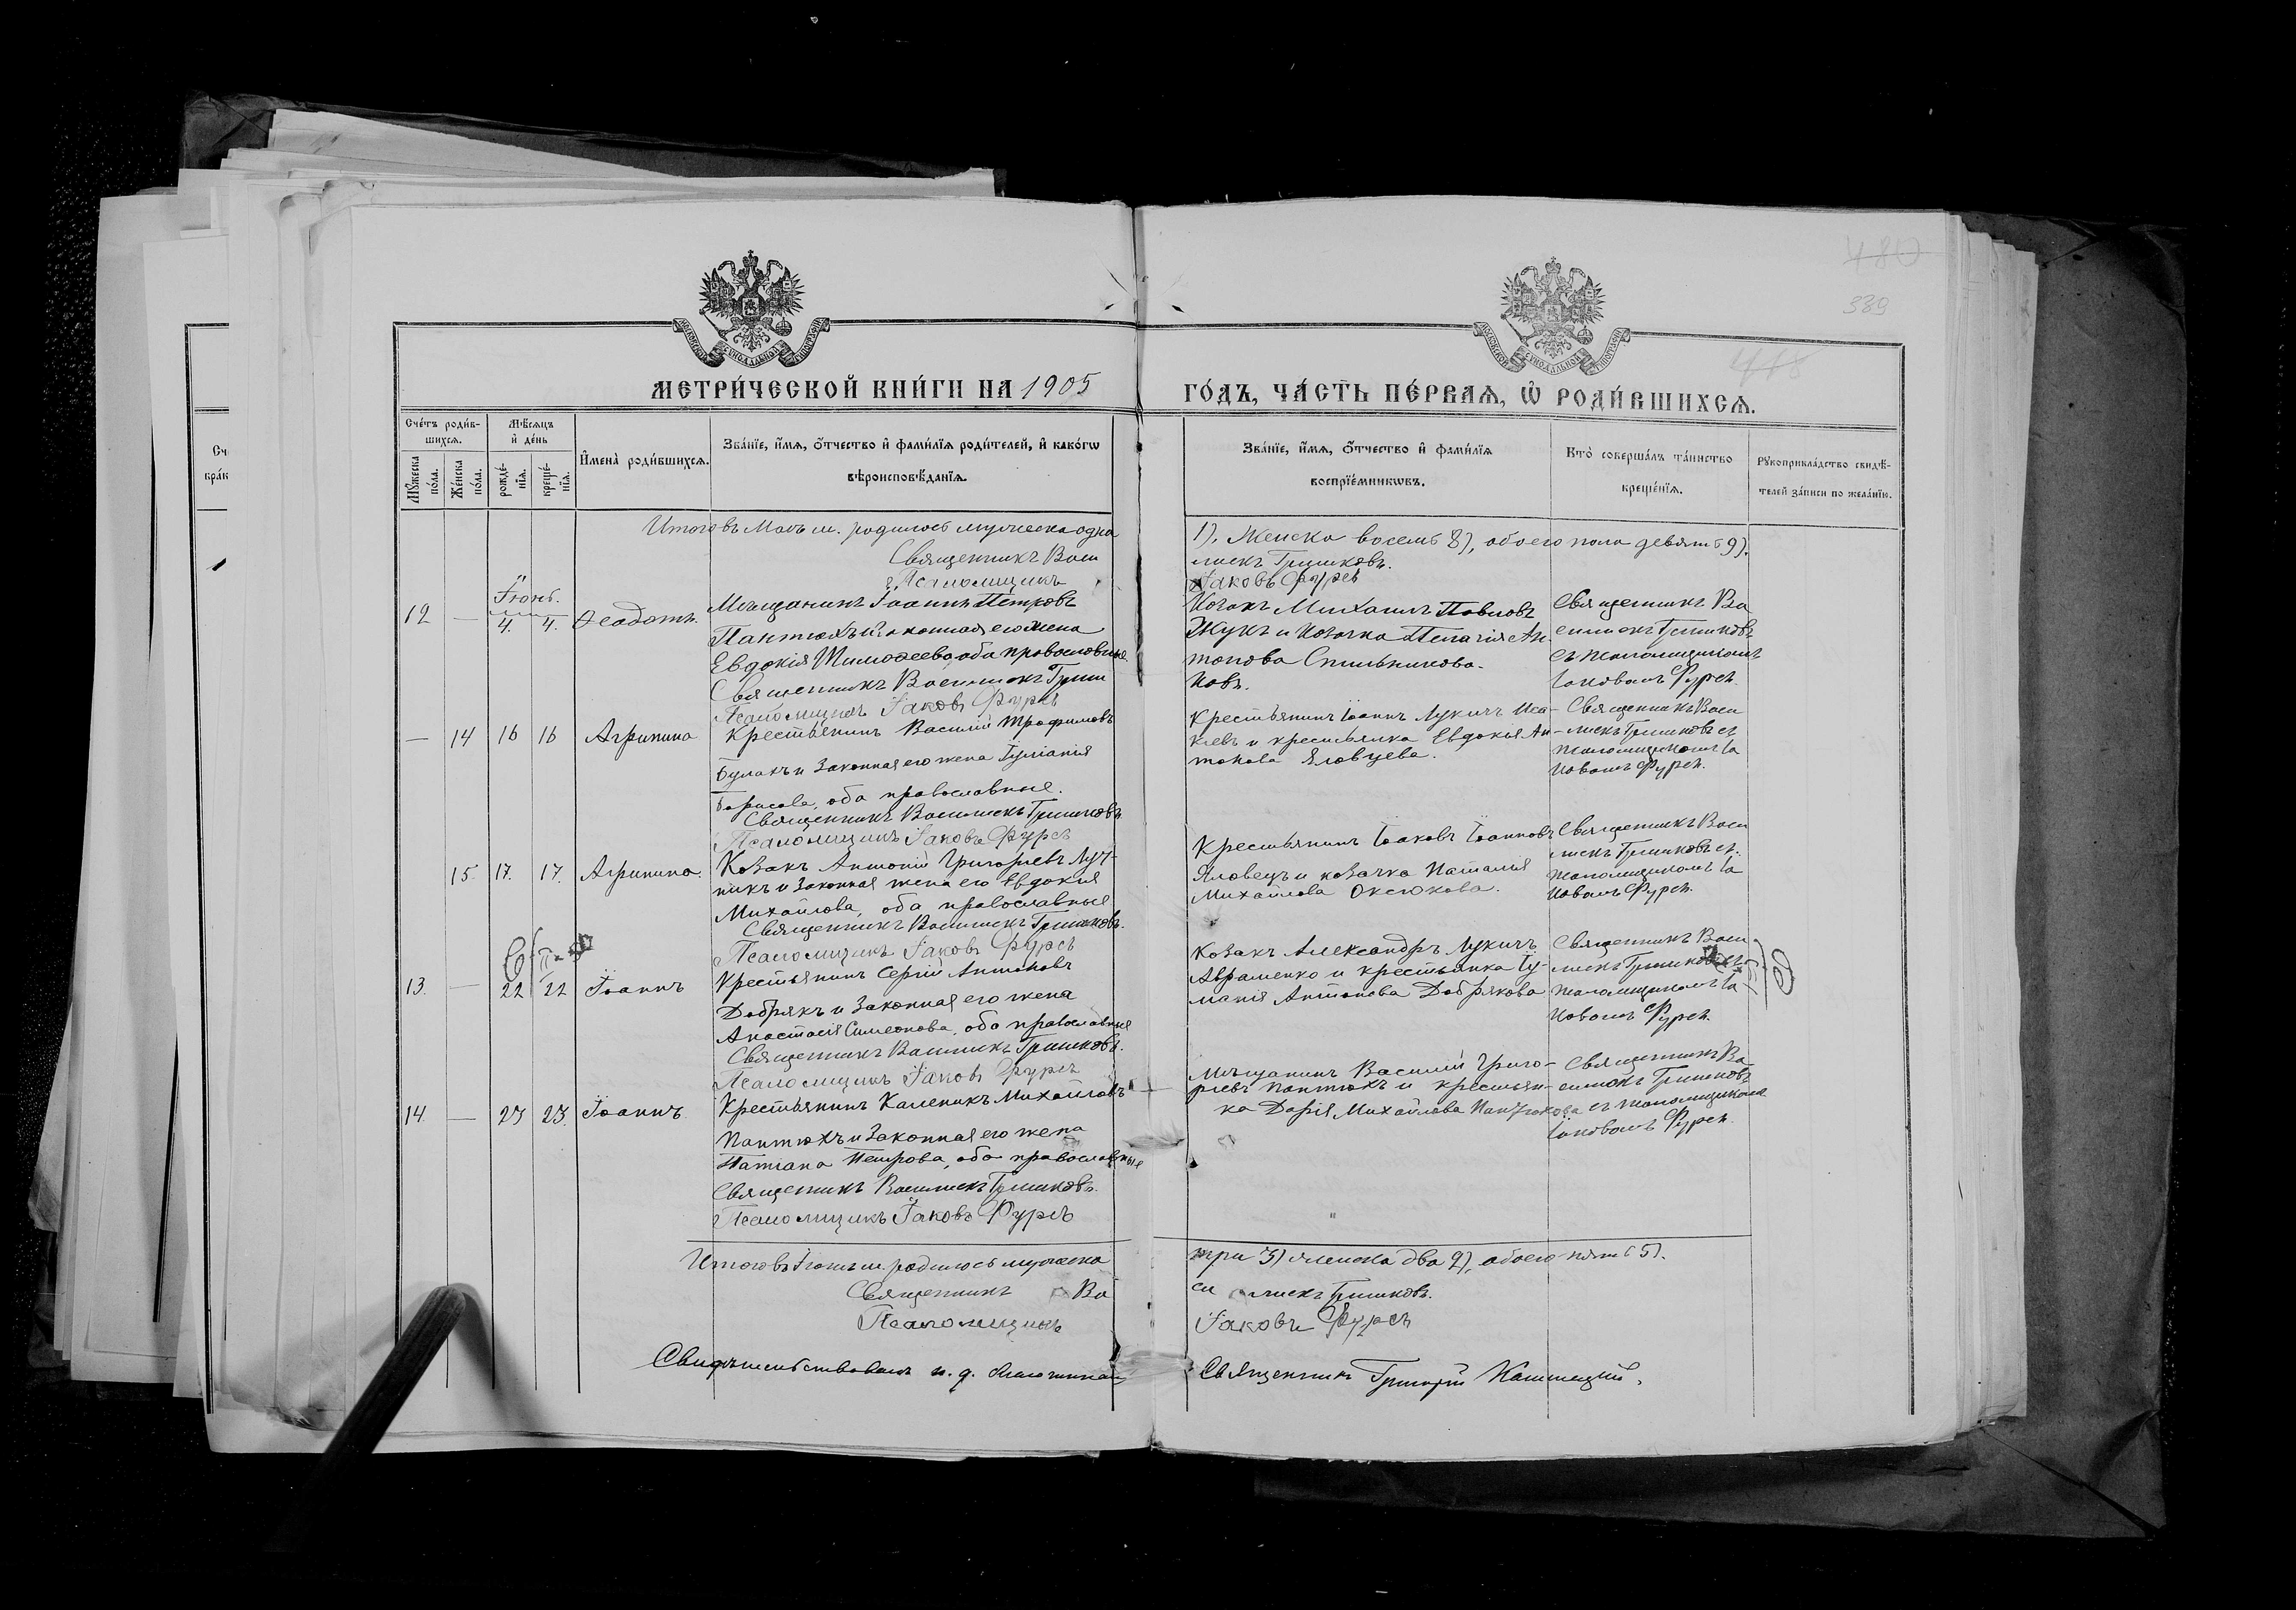 480
339
448
МОСКОВСКОЙ СѴНОДАЛЬНОЙ ТИПОГРАФІИ
МОСКОВСКОЙ СѴНОДАЛЬНОЙ ТИПОГРАФІИ
МЕТРИ́ЧЕСКОЙ КНИ́ГИ НА 1905
ГО́ДЪ, ЧА́СТЬ ПЕ́РВАѦ, Ѡ҆ РОДИ́ВШИХСѦ.
Сче́тъ роди́в-
шихсѧ.
Мꙋ́жеска
по́ла.
Же́нска
по́ла.
Мѣ́сѧцъ
и҆ де́нь
рожде́-
нїѧ.
креще́-
нїѧ.
И҆мена̀ роди́вшихсѧ.
Зва́нїе, и҆́мѧ, ѻ҆́тчество и҆ фами́лїѧ роди́телей, и҆ како́гѡ
вѣроисповѣ́данїѧ.
Зва́нїе, и҆́мѧ, ѻ҆́тчество и҆ фами́лїѧ
воспрїе́мникѡвъ.
Кто̀ соверша́лъ та́инство
креще́нїѧ.
Рꙋкоприкла́дство свидѣ́-
телей за́писи по жела́нїю.
Итого въ Маѣ м. родилось мужеска одна
1). Женска восемь 8), обоего пола девять 9).
Священникъ Васи
лискъ Гришковъ.
Псаломщикъ
Іаковъ Фурсъ
Іюнь.
12 — 4. 4. Ѳеодотъ.
Мѣщанинъ Іоаннъ Петровъ
Пантюхъ и законная его жена
Евдокія Тимоѳеева, оба православные.
Священникъ Василискъ Гриш
Псаломщикъ Іаковъ Фурсъ
Козакъ Михаилъ Павловъ
Жукъ и козачка Пелагія Ан-
тонова Спильникова.
ковъ.
Священникъ Ва
силискъ Гришковъ
съ псаломщикомъ
Іаковомъ Фурсъ.
— 14 16 16 Агрипина
Крестьянинъ Василій Трофимовъ
Булахъ и законная его жена Іуліанія
Борисова, оба православные.
Священникъ Василискъ Гришковъ
Псаломщикъ Іаковъ Фурсъ
Крестьянинъ Іоаннъ Лукичъ Иса-
кіевъ и крестьянка Евдокія Ан-
тонова Яловцева.
Священникъ Васи
лискъ Гришковъ съ
псаломщикомъ Іа
ковомъ Фурсъ.
15. 17. 17. Агрипина.
Козакъ Антоній Григорьевъ Луч-
никъ и законная жена его Евдокія
Михайлова, оба православные
Священникъ Василискъ Гришковъ.
Псаломщикъ Іаковъ Фурсъ
Крестьянинъ Іоаковъ Іоанновъ
Яловецъ и козачка Наталія
Михайлова Оксюкова.
Священникъ Васи
лискъ Гришковъ съ
псаломщикомъ Іа
ковомъ Фурсъ.
13. — 22 22 Іоаннъ
Крестьянинъ Сергій Антоновъ
Добрякъ и законная его жена
Анастасія Симеонова, оба православные
Священникъ Василискъ Гришковъ.
Псаломщикъ Іаковъ Фурсъ
Козакъ Александръ Лукичъ
Авраменко и крестьянка Іу-
ліанія Антонова Добрякова
Священникъ Васи
лискъ Гришковъ съ
псаломщикомъ Іа
ковомъ Фурсъ.
14. — 23 23. Іоаннъ
Крестьянинъ Каленикъ Михайловъ
Пантюхъ и законная его жена
Татіана Петрова, оба православные
Священникъ Василискъ Гришковъ.
Псаломщикъ Іаковъ Фурсъ
Мѣщанинъ Василій Григо-
рьевъ Пантюхъ и крестьян-
ка Дарія Михайлова Пантюхова
Священникъ Ва
силискъ Гришковъ
съ псаломщикомъ
Іаковомъ Фурсъ.
Итого въ Іюнѣ м. родилось мужеска
три 3) женска два 2), обоего пять 5).
Священникъ Ва
силискъ Гришковъ.
Псаломщикъ
Іаковъ Фурсъ
Свидѣтельствовалъ и. д. благочиннаго
Священникъ Григорій